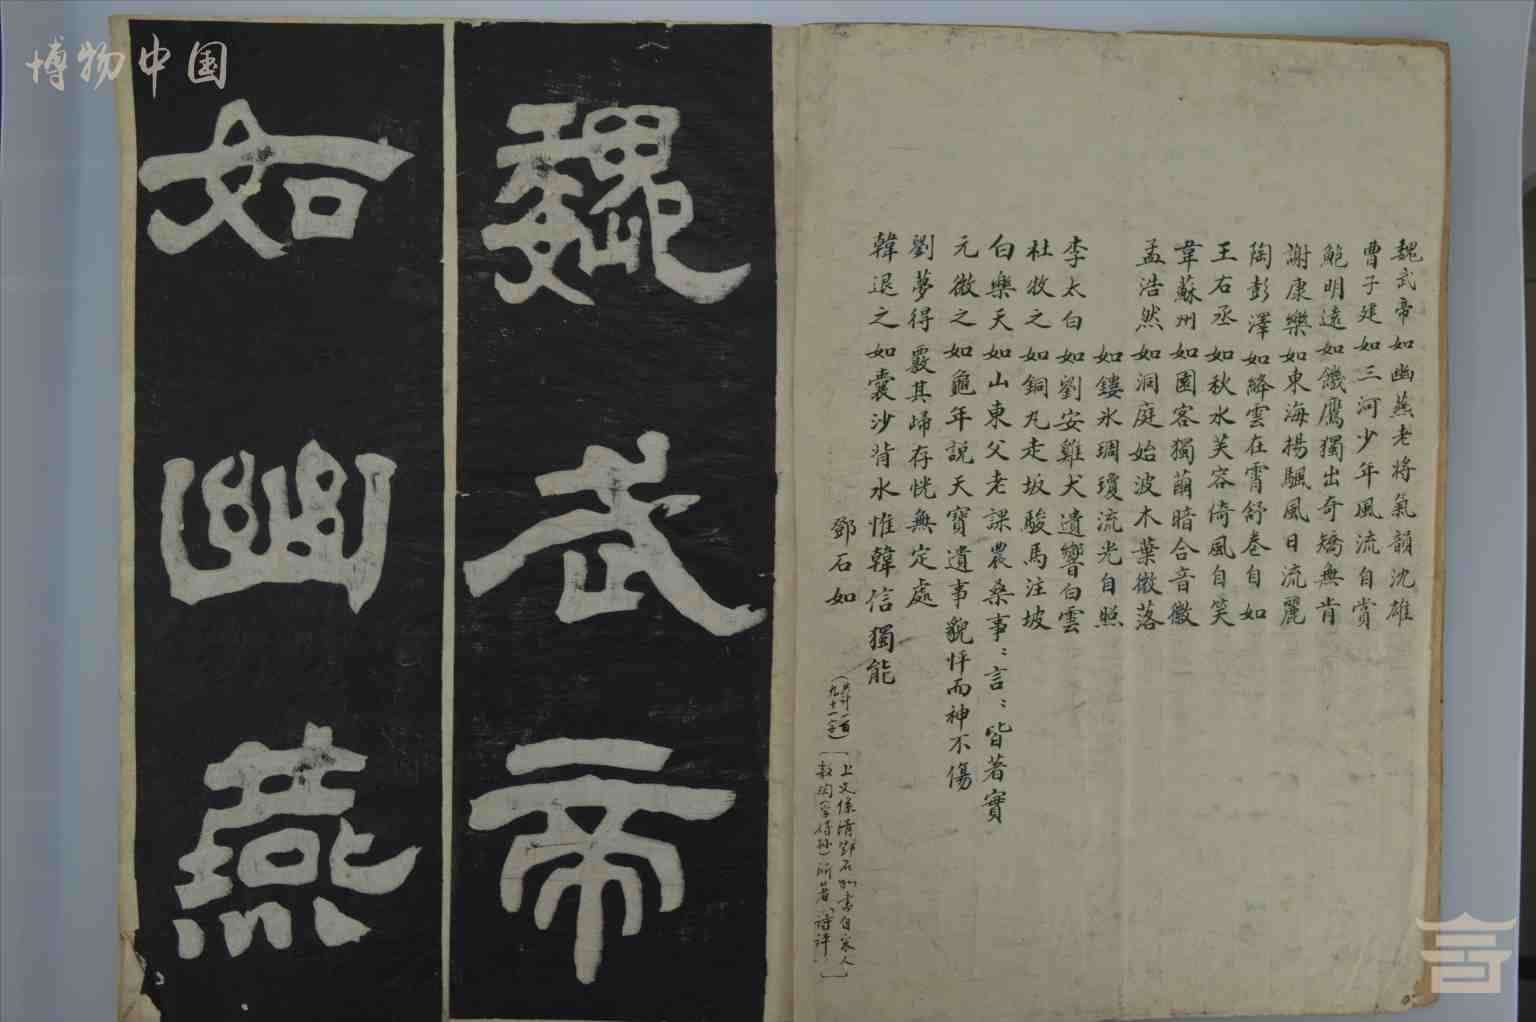 博物中国
魏武帝如幽燕老將氣韻沈雄
曹子建如三河少年風流自賞
鮑明遠如饑鷹獨出奇矯無肯
謝康樂如東海揚颿風日流麗
陶彭澤如絳雲在霄舒卷自如
王右丞如秋水芙容倚風自笑
韋蘇州如園客獨繭暗合音徽
孟浩然如洞庭始波木葉微落
如鏤氷琱瓊流光自照
李太白如劉安雞犬遺響白雲
杜牧之如銅丸走坂駿馬注坡
白樂天如山東父老課農桑事〻言〻皆著實
元微之如龜年説天寶遺事貌悴而神不傷
劉夢得覈其歸存恍無定處
韓退之如囊沙背水惟韓信獨能
鄧石如
(共計一百九十一字)
〔上文係清鄧石如書自宋人
敖陶孫 所著《詩評》〕
魏武帝
如幽燕